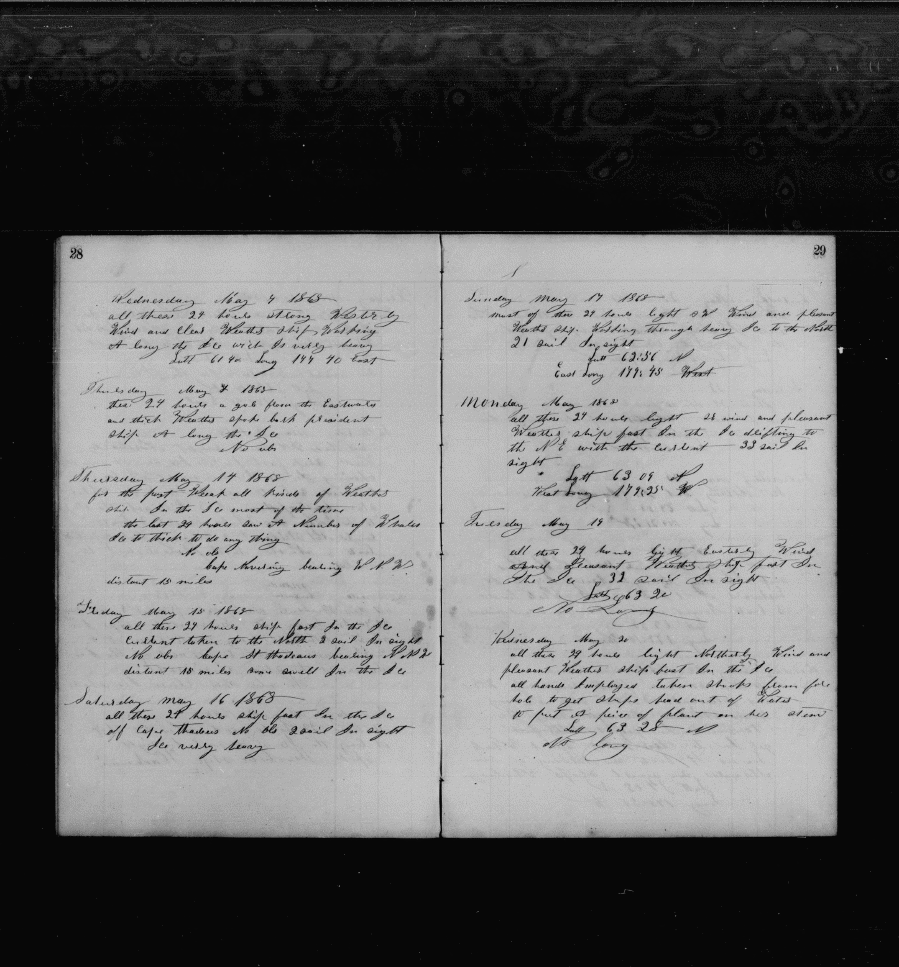 28
Wednesday May 1868
all these 24 hours strong Westerly
Wind and Clear Weather ship Working
A long the Ice wich Is verry heavy
Latt 61 40 Long 179 40 East
Thursday May 1868
these 24 hours a gale from the Eastward
and thick Weather spoke bark president
ship A long the Ice
No obs
Thursday May 14 1868
for the past Weeak all kinds of Weather
ship In the Ice most of the time
the last 24 hours saw A Number of Whales
Ice to thick to do any thing
No obs
Cape Navering bearing W N W
distant 15 miles
Friday May 15 1868
all these 24 hours ship fast In the Ice
Current to the North 2 sail In sight
No obs Cape St thadeaus bearing
distant 18 miles some swell In the Ice
Saturday may 16 1868
all these 24 hours ship fast In the Ice
off Cape thadeus No obs 2 sail In sight
Ice verry heavy
29
Sunday may 17 1868
most of these 24 hours light SW Wind and pleasent
Weather ship Working through heavy Ice to the North
21 sail In sight
Latt 62:56 N
East Long 179:48 West
Monday May 1868
all these 24 hours light wind and pleasant
Weather ship fast In the Ice drifting to
the N E with the current 33 sail In
sight
Latt 63 09 N
West Long 179:35 W
Tuesday May 19
all these 24 hours light Easterly Wind
and Pleasant Weather ship fast In
the Ice 32 sail In sight
Latt 63 20
No Long
Wednesday May 20
all these 24 hours light Notherly Wind and
pleasant Weather ship fast In the Ice
all hands Employed taken shooks from fore
hole to get ships head out of Water
to put A peice of plank on her stem
Latt 63 28 N
No Long